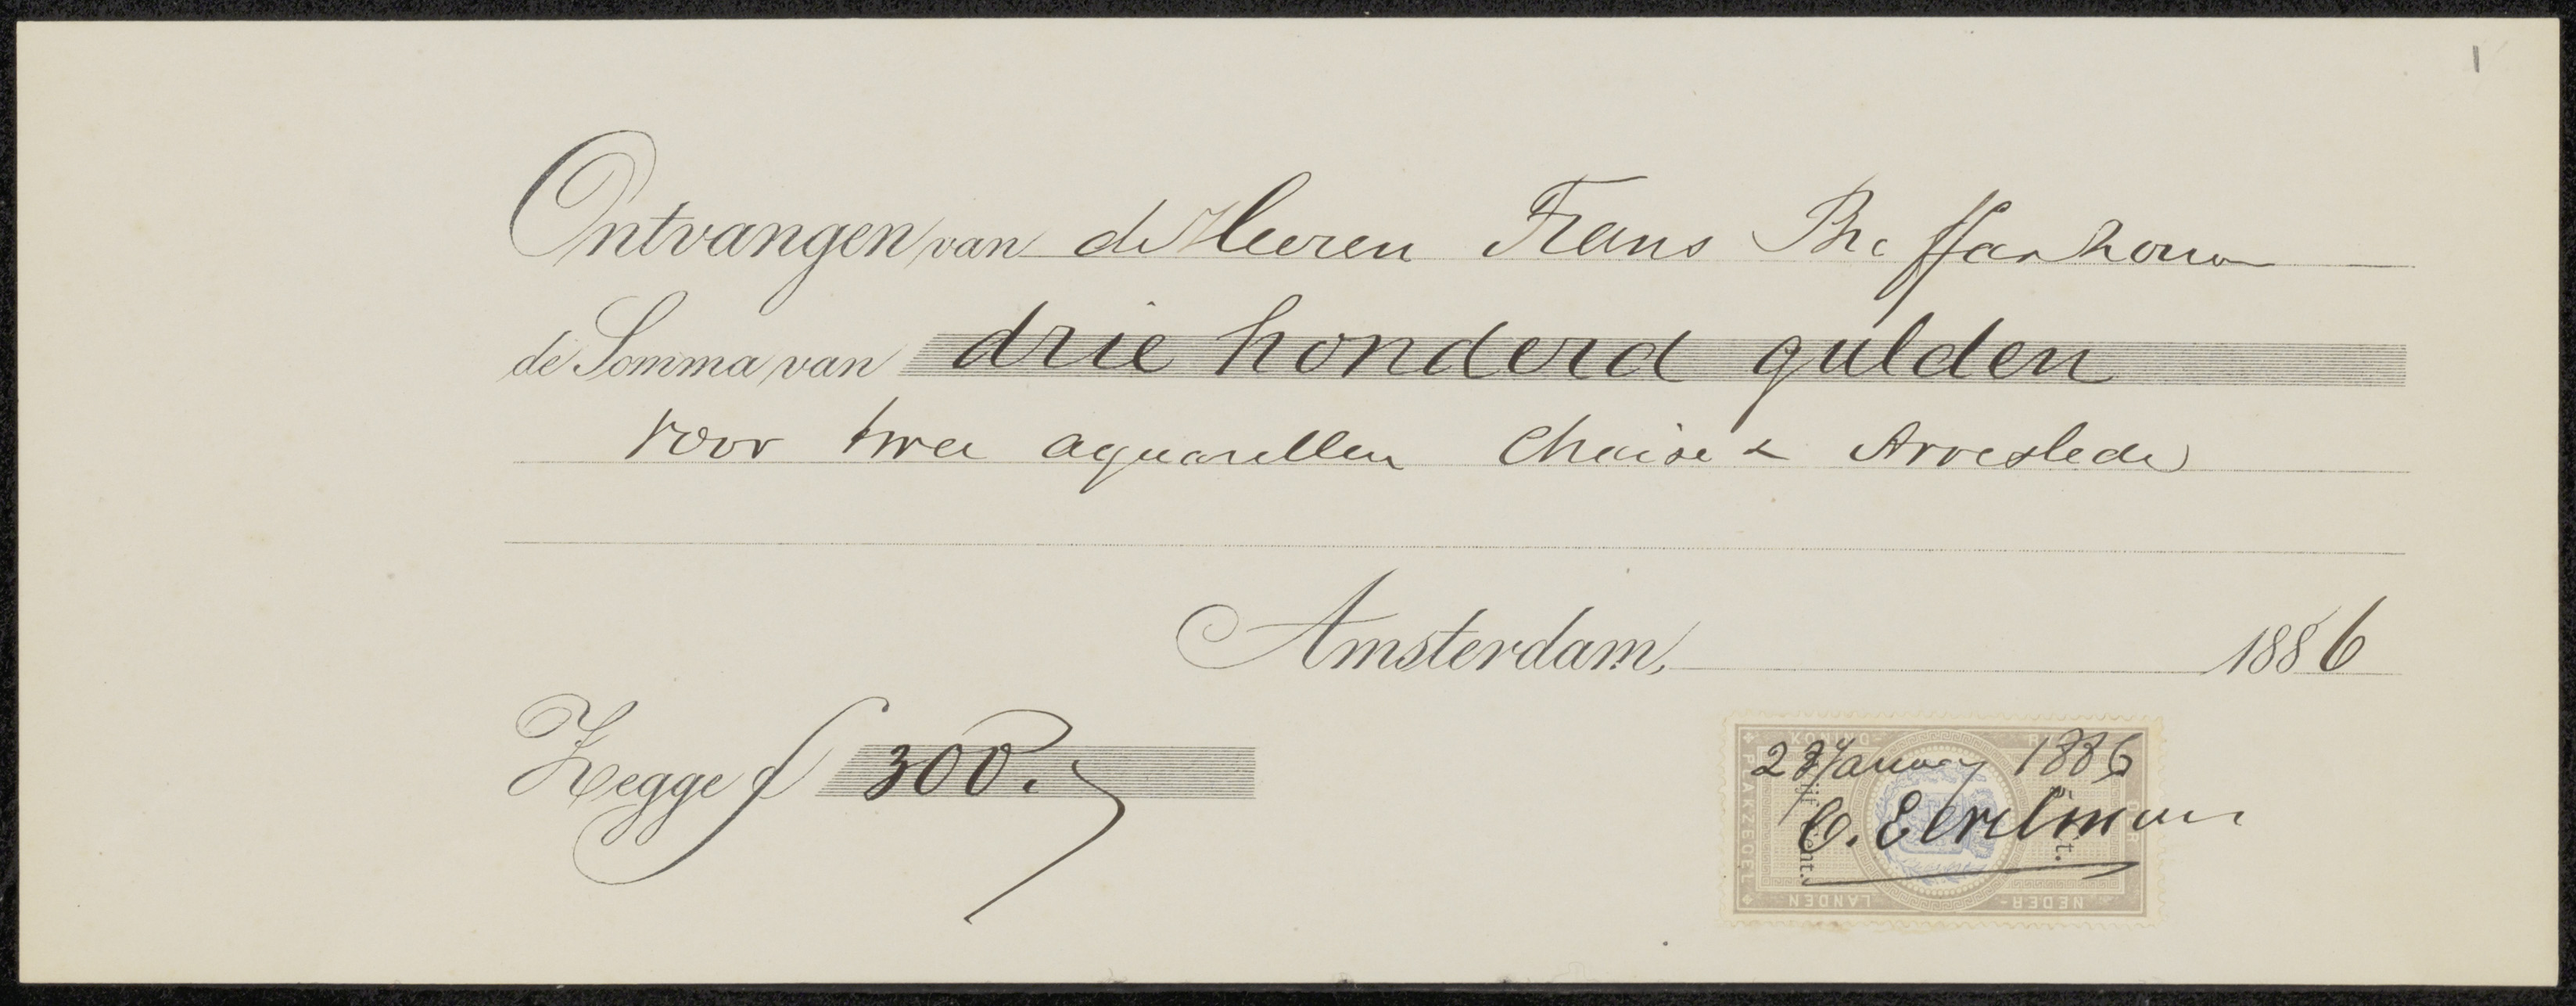 Ontvangen van de Heeren Frans Buffa & Zonen
de Somma van drie honderd gulden
voor twee aquarellen Chaise & Arreslede
Amsterdam, 1886
Zegge f 300.
KONINK- RIJK
PLAKZEGEL
23 January 1886
O. Eerelman
Vijf Cent.
NEDER-LANDEN